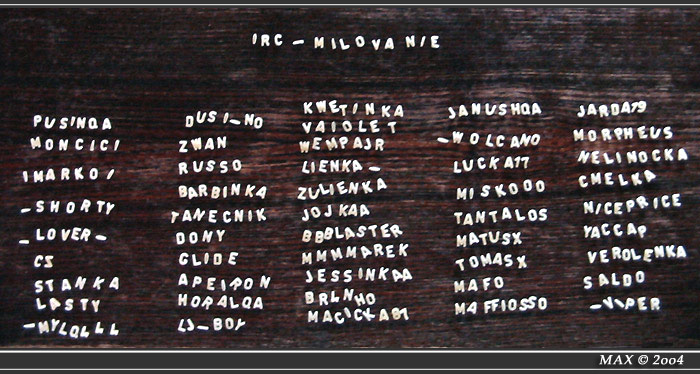 IRC - MILOVANIE
PUSINQA
MONCICI
IMARKOI
-SHORTY
_LOVER-
CS
STANKA
LASTY
-MYLQLLL
DUSI_NO
ZWAN
RUSSO
BARBINKA
TANECNIK
DONY
GLIDE
APEIRON
HORALQA
LJ-BOY
KWETINKA
VAIOLET
WEMPAJR
LIENKA-
ZULIENKA
JOJKAA
BBBLASTER
MMMMAREK
JESSINKAA
BRLNHO
MACICKA87
JANUSHQA
-WOLCANO
LUCKA77
MISKOOO
TANTALOS
MATUSX
TOMASX
MAFO
MAFFIOSSO
JARDA79
MORPHEUS
NELINOCKA
CMELKA
NICEPRICE
YACCAP
VEROLENKA
SALDO
-VIPER
MAX © 2004